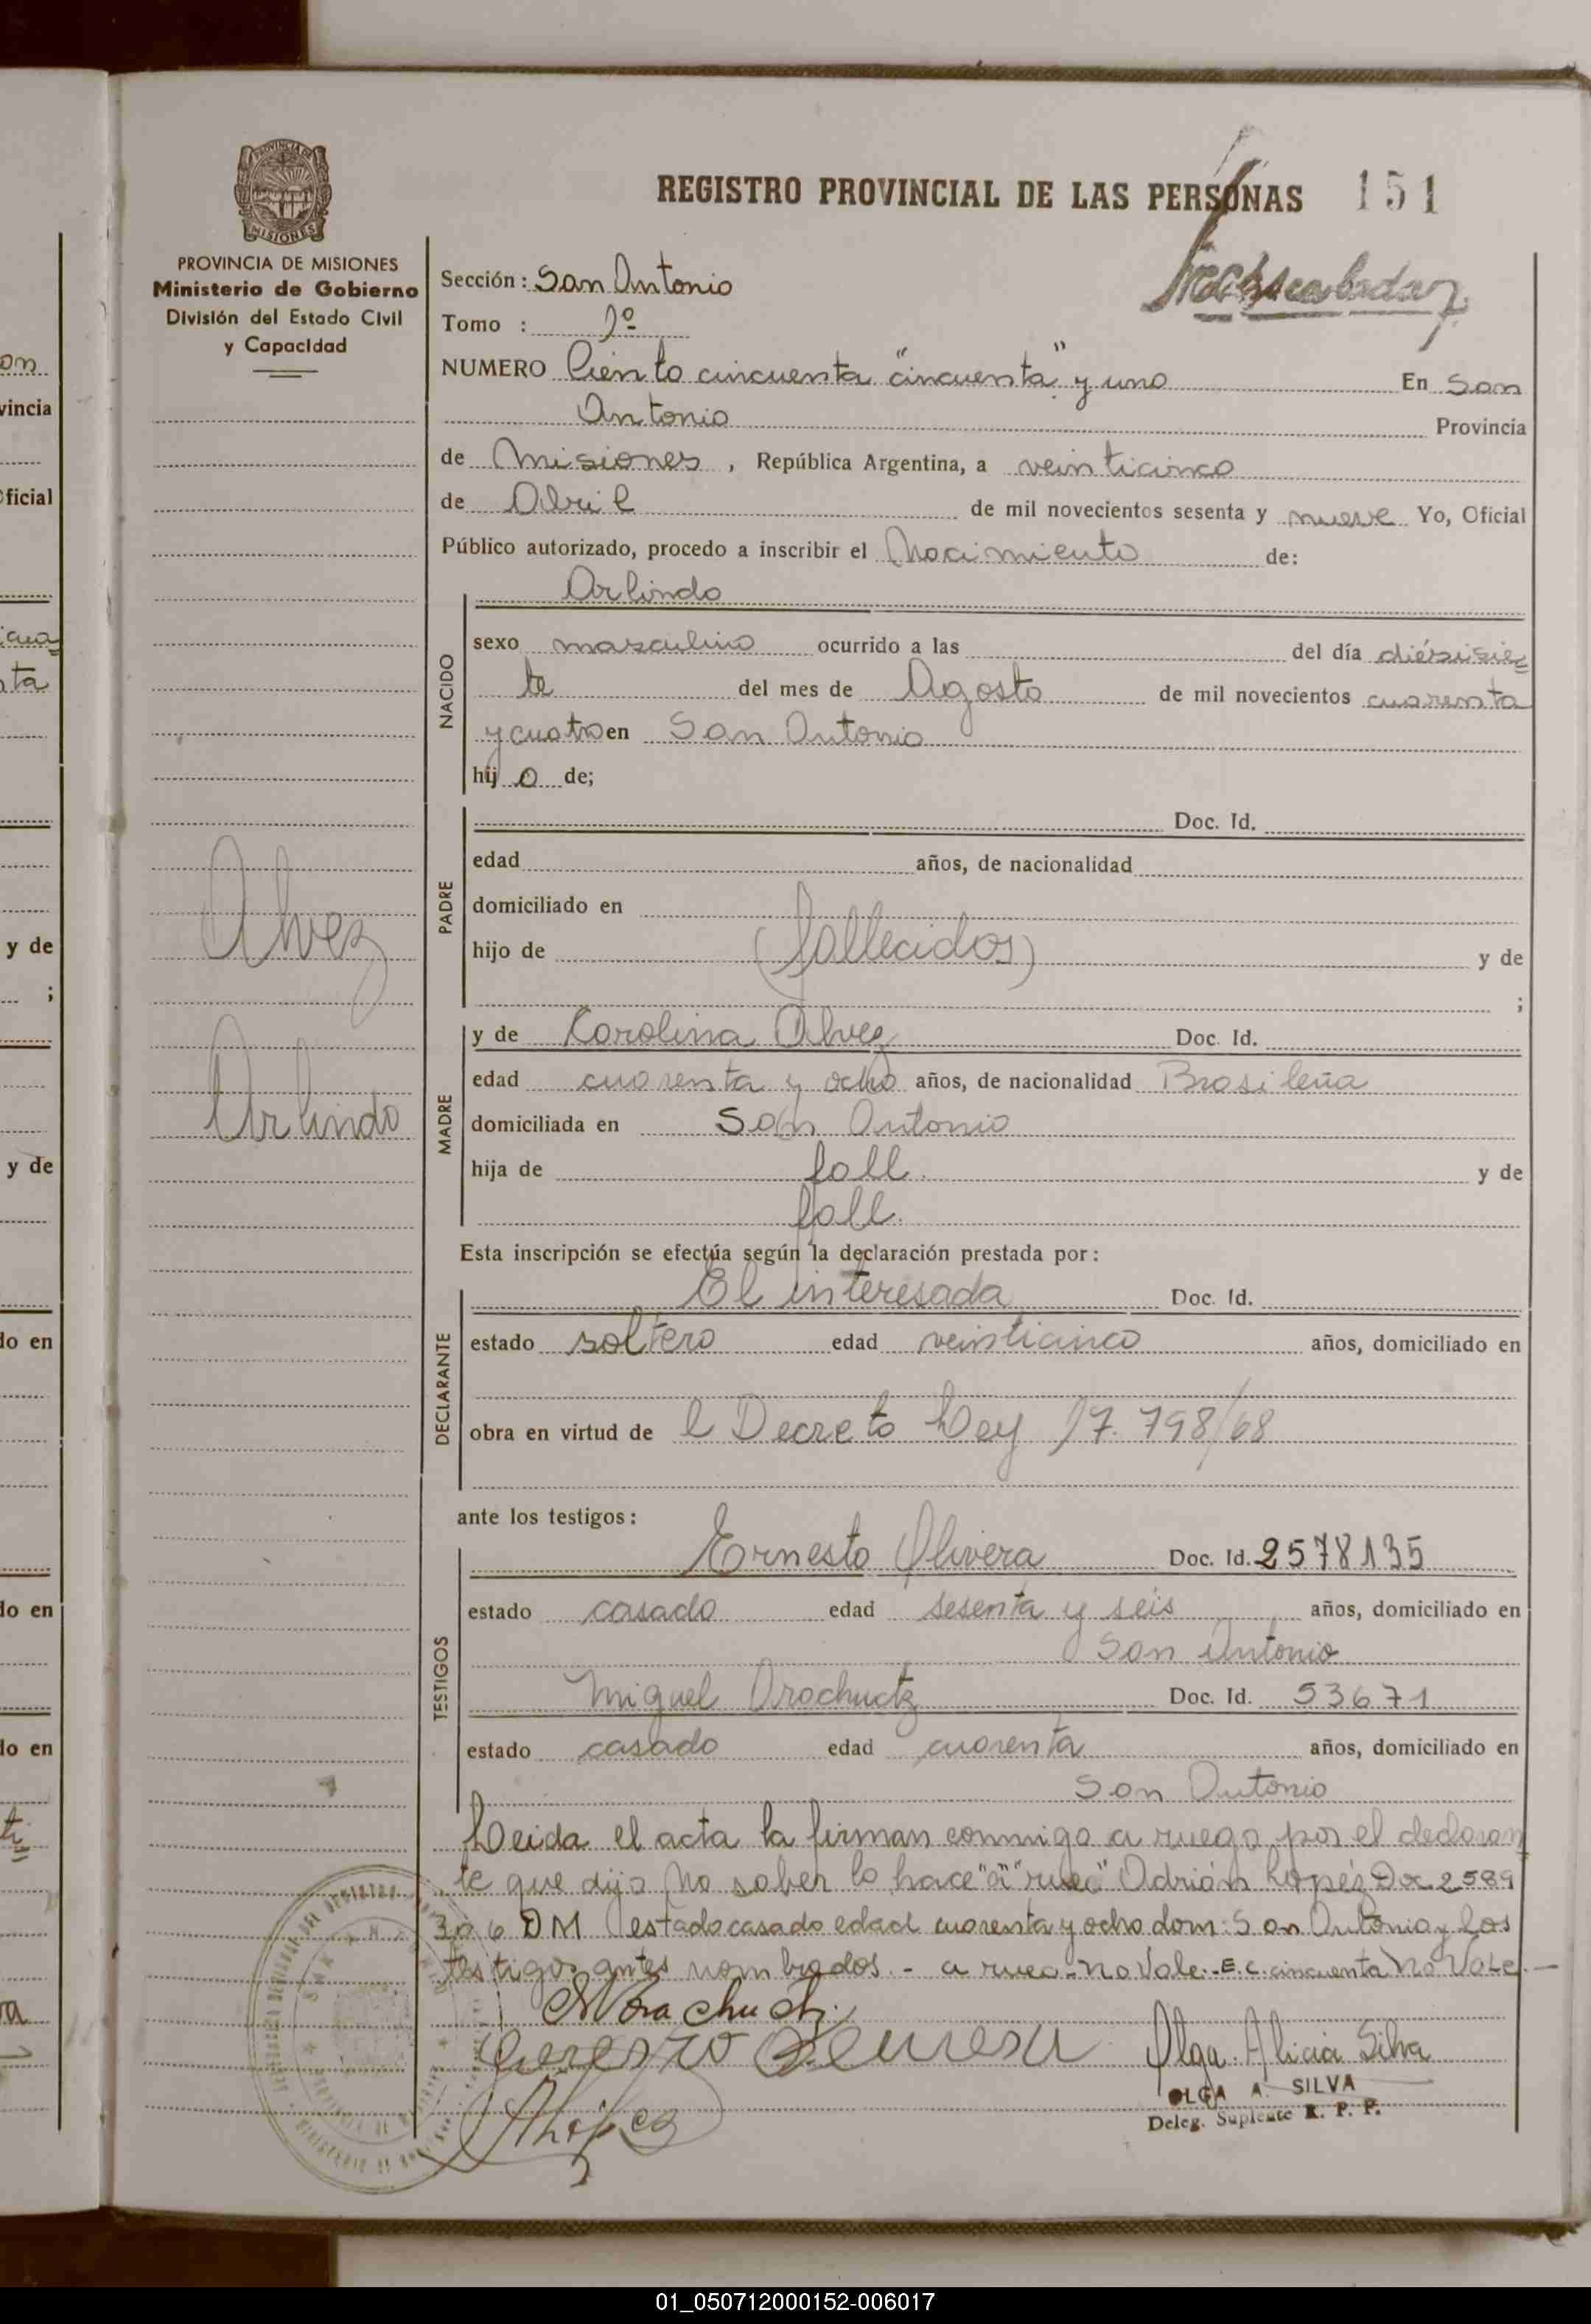 REGISTRO PROVINCIAL DE LAS PERSONAS 151
PROVINCIA DE MISIONES
Ministerio de Gobierno
División del Estado Civil
y Capacidad
Sección: San Antonio
Tomo : 1º
NUMERO Ciento cincuenta "cincuenta" y uno En San
Antonio Provincia
de Misiones, República Argentina, a veinticinco
de Abril de mil novecientos sesenta y nueve Yo, Oficial
Público autorizado, procedo a inscribir el Nacimiento de:
Arlindo
NACIDO
sexo masculino ocurrido a las del día diésisie=
te del mes de Agosto de mil novecientos cuarenta
y cuatro en San Antonio
hij o de;
PADRE
Doc. Id.
edad años, de nacionalidad
domiciliado en
hijo de (fallecidos) y de
;
Alvez
Arlindo
MADRE
y de Carolina Alvez Doc. Id.
edad cuarenta y ocho años, de nacionalidad Brasileña
domiciliada en San Antonio
hija de fall. y de
fall.
Esta inscripción se efectúa según la declaración prestada por:
DECLARANTE
El interesada Doc. Id.
estado soltero edad veinticinco años, domiciliado en
obra en virtud de l Decreto Ley 17.798/68
ante los testigos:
TESTIGOS
Ernesto Olivera Doc. Id. 2578135
estado casado edad sesenta y seis años, domiciliado en
San Antonio
Miguel Orochuctz Doc. Id. 53671
estado casado edad cuarenta años, domiciliado en
San Antonio
Leida el acta la firman conmigo a ruego por el declaran
te que dijo No saber lo hace "a" "rueo" Adrián Lopéz Doc 2589
306 DM estado casado edad cuarenta y ocho dom: San Antonio y los
testigos antes nombrados.- a rueo - no Vale.- E.c. cincuenta No Vale.-
Olga Alicia Silva
OLGA A. SILVA
Deleg. Suplente R. P. P.
ALópez
on
vincia
ficial
ta
y de
;
y de
do en
do en
do en
01_050712000152-006017